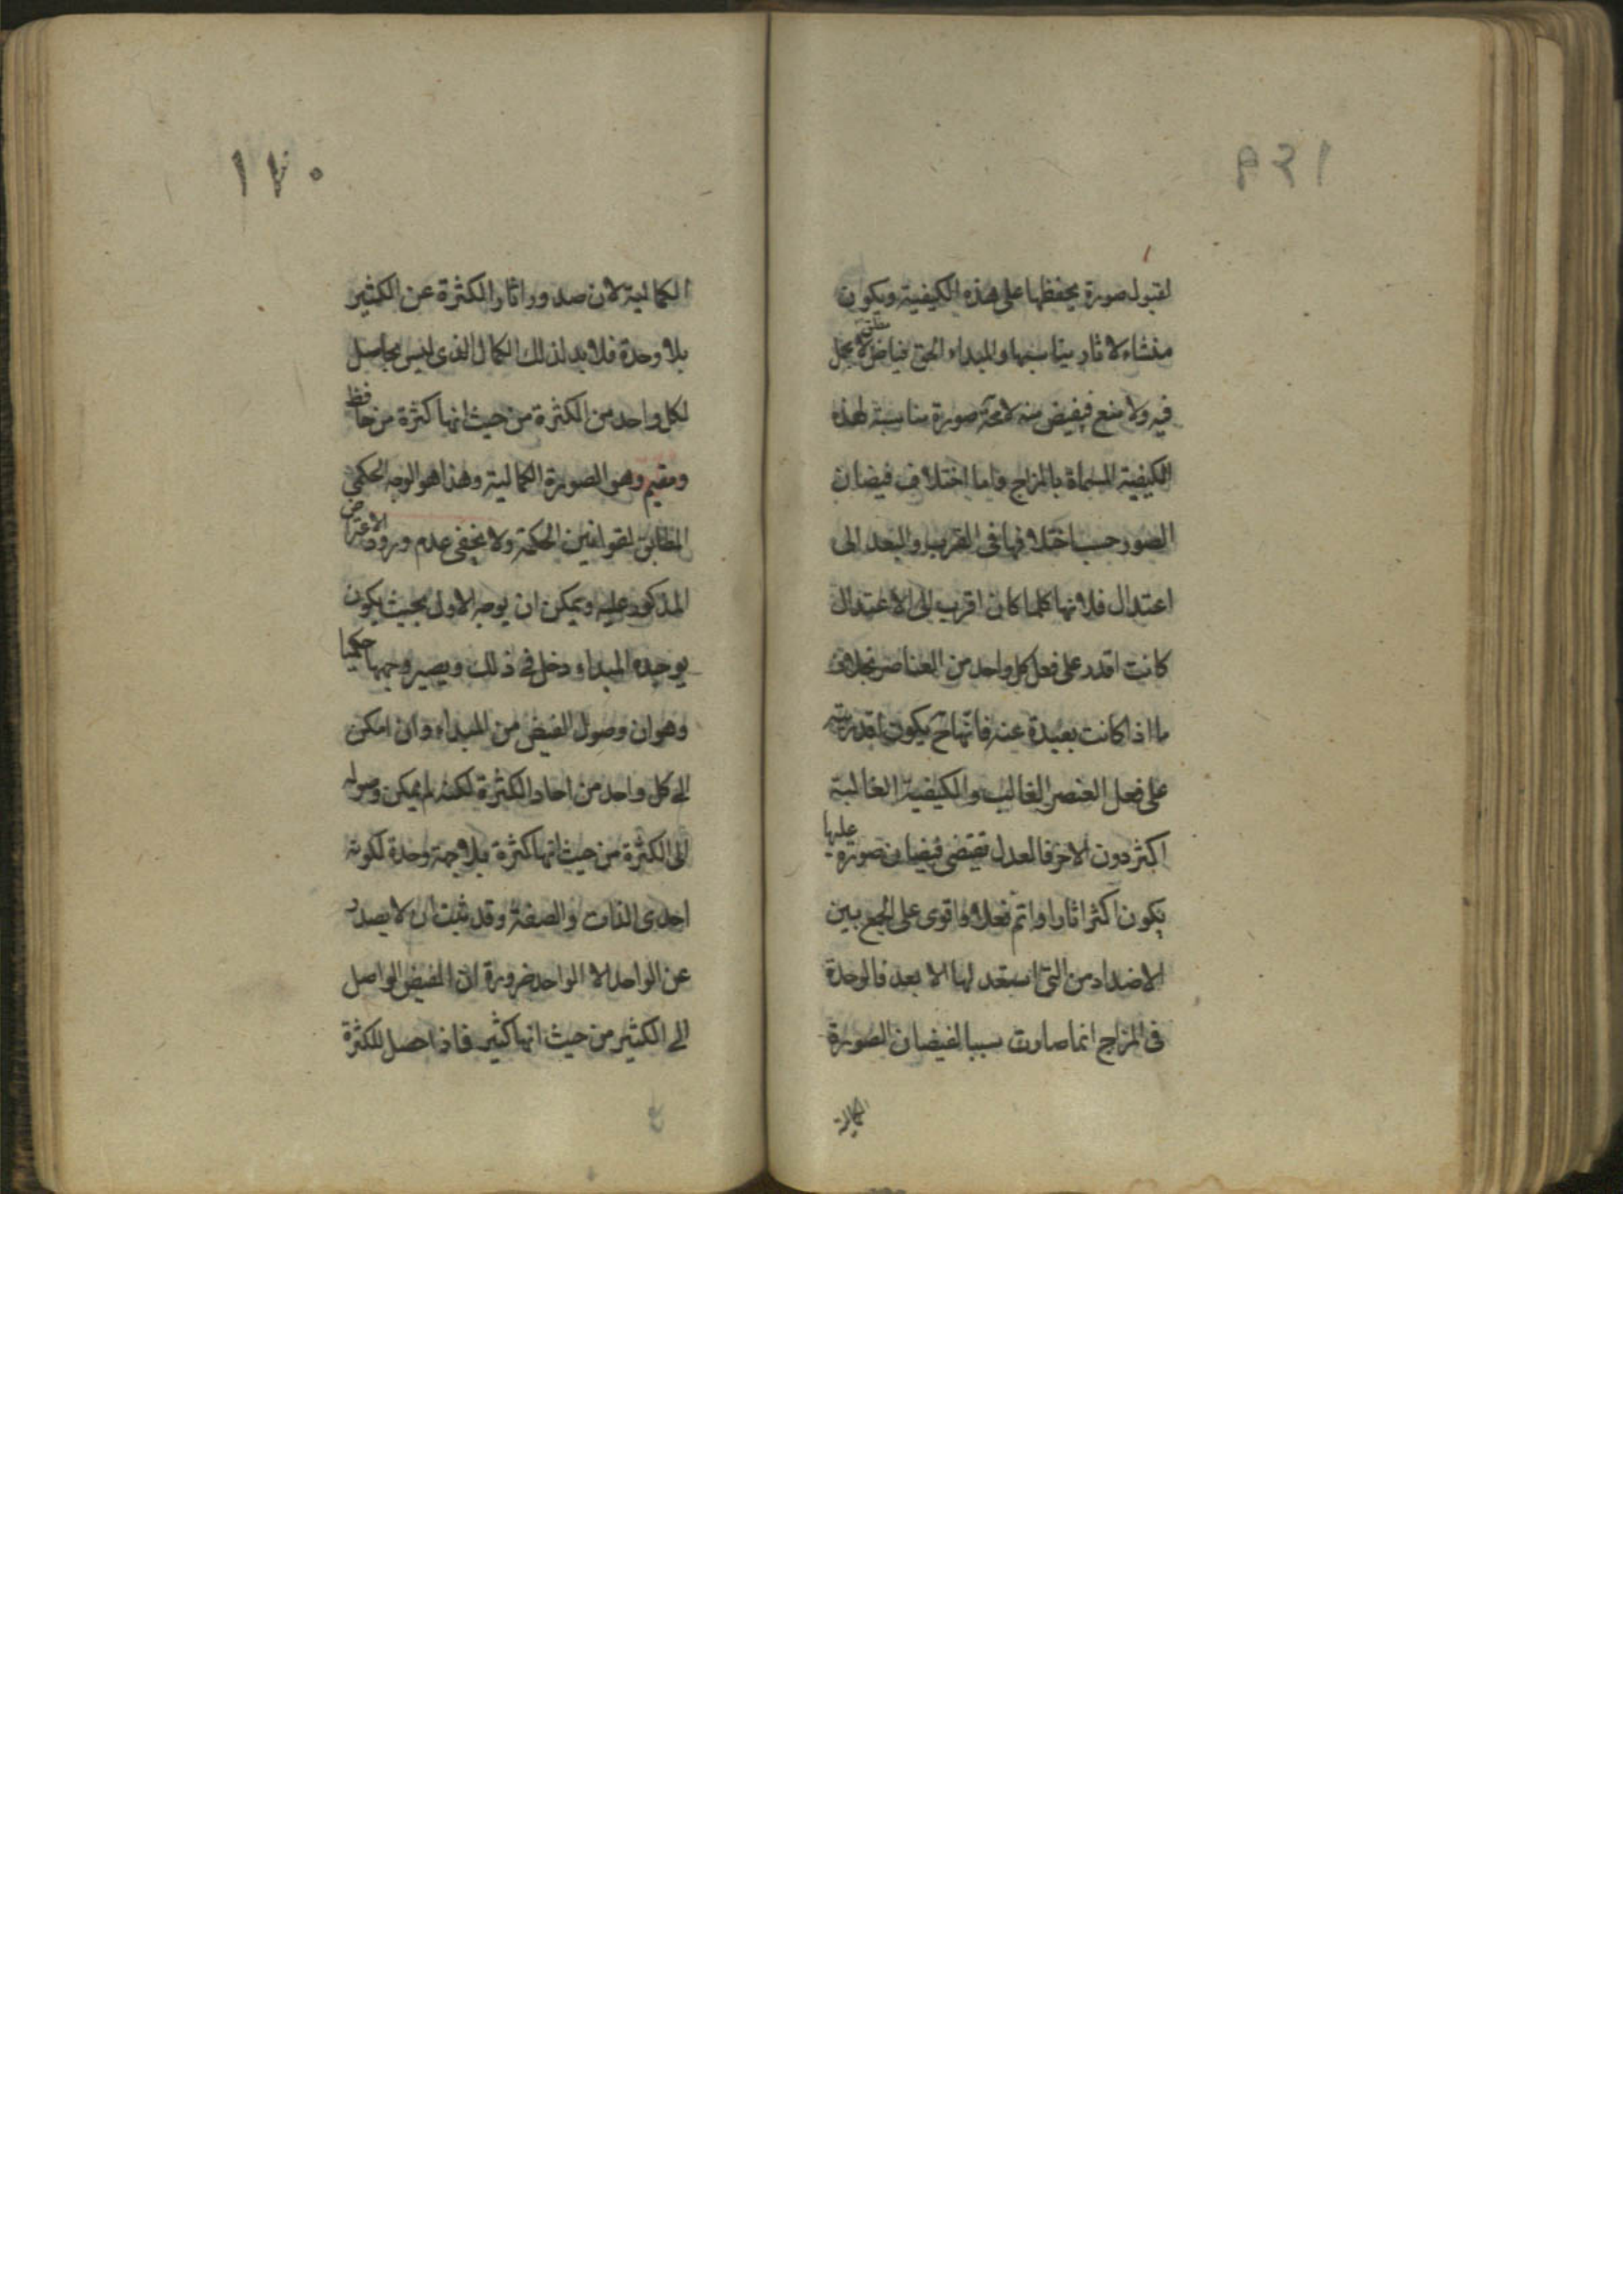 لقبول صورة يحفظها على هذه الكيفية ويكون
منشاء لاثار يناسبها والمبداء الحق فياض مطلق لا بخل
فيه ولا منع فيفيض منه لا محة صورة مناسبة لهذه
الكيفية المسماة بالمزاج واما اختلاف فيضان
الصور حسب اختلافها فى القرب والبعد الى
اعتدال فلانها كلما كان اقرب الى الاعتدال
كانت اقدر على فعل كل واحد من العناصر بخلاف
ما اذا كانت بعيدة عنه فانها ح يكون
على فعل العنصر الغالب والكيفية الغالبة
اكثر دون الاخر فالعدل تقتضى فيضان صورة عليها
يكون اكثر اثارا واتم فعلا واقوى على الجمع بين
الاضداد من التى استعد لها الابعد فالوحدة
فى المزاج انما صارت سببا لفيضان الصورة
الكمالية
١٧٠
الكمالية لان صدور اثار الكثرة عن الكثير
بلا وحدة فلا بد لذلك الكمال الذى ليس بحاصل
لكل واحد من الكثرة من حيث انها كثرة من حافظ
ومقيم وهو الصورة الكمالية وهذا هو الوجه الحكمى
المطابق لقوانين الحكمة ولا يخفى عدم ورود الاعتراض
المذكور عليه ويمكن ان يوجه الاول بحيث يكون
المبداء دخل فى ذلك ويصير وجها حكميا
وهو ان وصول الفيض من المبداء وان امكن
الى كل واحد من احاد الكثرة لكنه لم يمكن وصوله
الى الكثرة من حيث انها كثرة بلا جهة وحدة لكونه
احدى الذات والصفة وقد ثبت ان لا يصدر
عن الواحد الا الواحد ضرورة ان الفيض الواصل
الى الكثير من حيث انها كثير فاذا حصل للكثرة